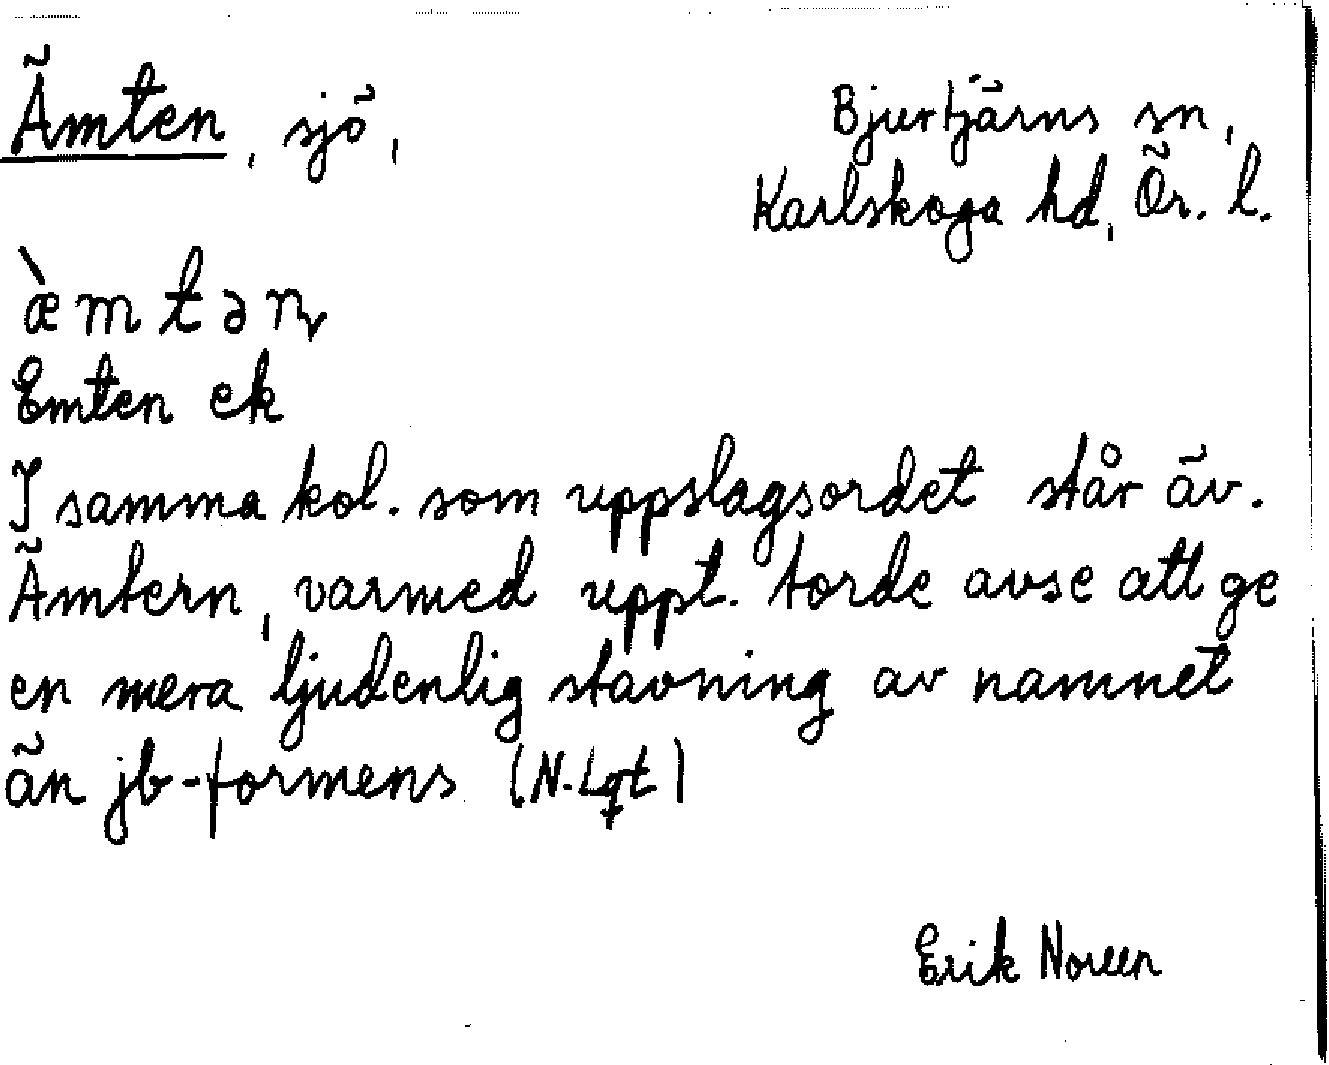 Ämten, sjö,
Bjurtjärns sn,
Karlskoga hd, Ör. l.
æ̀mtən
Emten ek
I samma kol. som uppslagsordet står äv.
Ämtern, varmed uppt. torde avse att ge
en mera ljudenlig stavning av namnet
än jb-formens (N. Lgt)
Erik Noreen